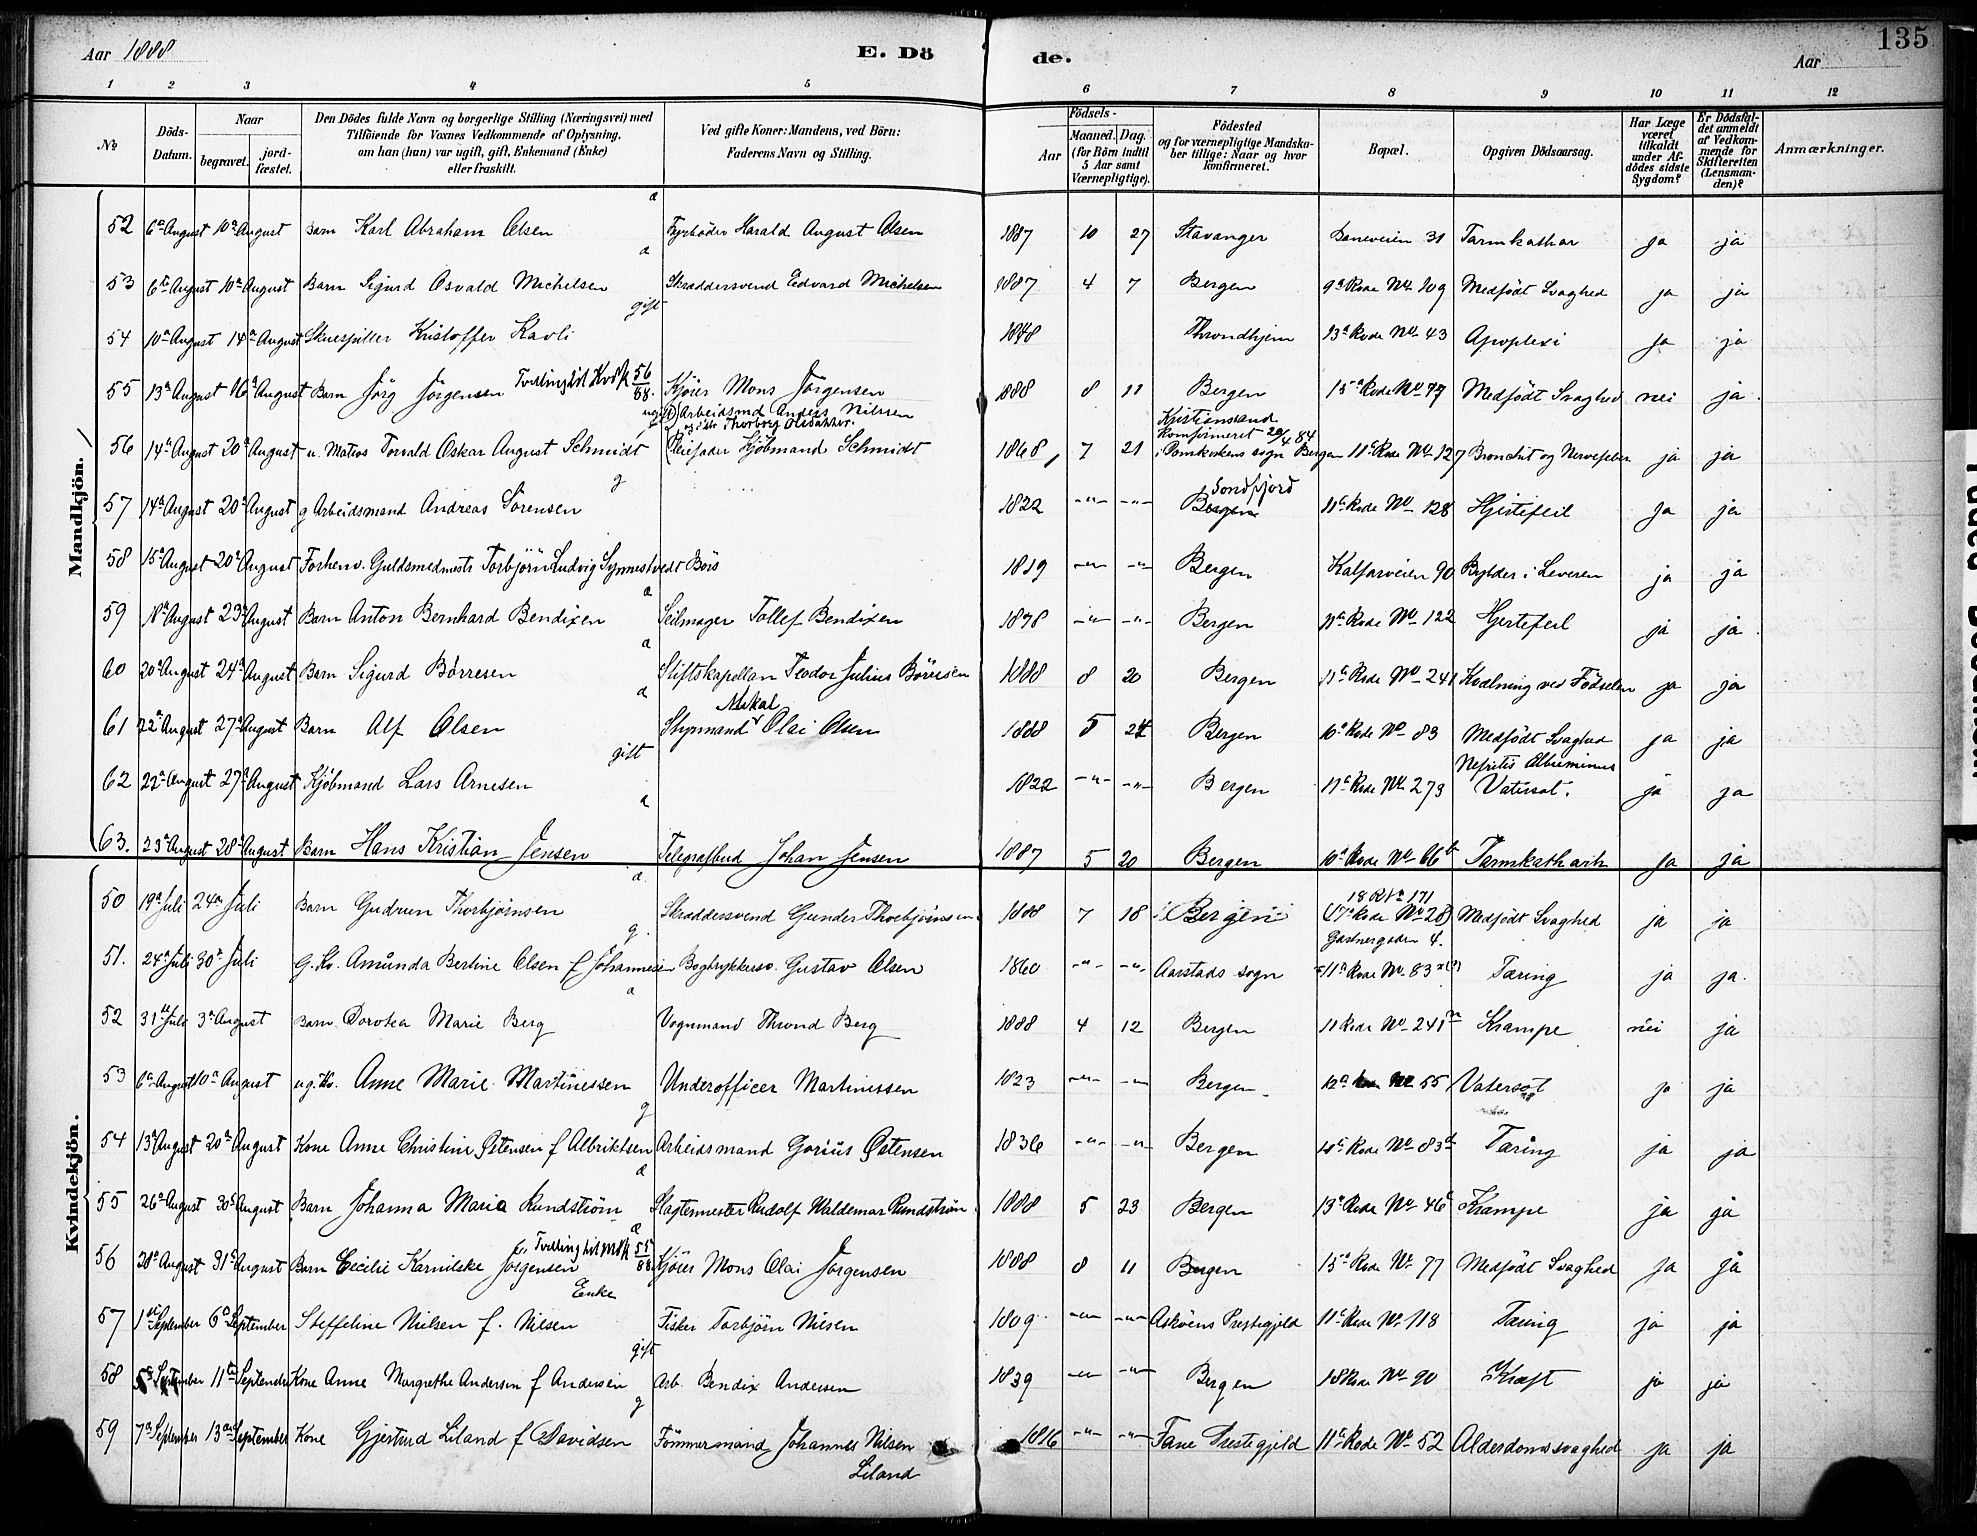 Aar 1888 E. Dö de. Aar 135
1 2 3 4 5 6 7 8 9 10 11 12
№ Döds-Datum. Naar begravet. jord-fæstet. Den Dödes fulde Navn og borgerlige Stilling (Næringsvei) med Tilföiende for Voxnes Vedkommende af Oplysning, om han (hun) var ugift, gift, Enkemand (Enke) eller fraskilt. Ved gifte Koner: Mandens, ved Börn: Faderens Navn og Stilling. Födsels- Aar Maaned. Dag. (for Börn indtil 5 Aar samt Værnepligtige). Födested og for værnepligtige Mandskaber tillige: Naar og hvor konfirmeret. Bopæl. Opgiven Dödsaarsag. Har Læge været tilkaldt under Afdödes sidste Sygdom? Er Dödsfaldet anmeldt af Vedkommende for Skifteretten (Lensmanden)? Anmærkninger.
Mandkjön.
52 6te August 10de August Barn Karl Abraham Olsen a Fyrböder Harald August Olsen 1887 10 27 Stavanger Baneveien 31 Tarmkathar ja ja
53 6te August 10de August Barn Sigurd Osvald Michelsen a Skræddersvend Edvard Michelsen 1887 4 7 Bergen 9de Rode No 109 Medfödt Svaghed ja ja
54 10de August 14de August Skuespiller Kristoffer Kavli gift 1848 Throndhjem 13de Rode No 43 Apoplexi ja ja
55 13de August 16de August Barn Jörg Jörgensen Tvilling til Kvdk 56/88. Kjöier Mons Jörgensen 1888 8 11 Bergen 15de Rode No 77 Medfödt Svaghed nei ja
56 14de August 20de August u. Matros Torvald Oskar August Schmidt ugift Arbeidsmd Anders Nilssen og Thorborg Olsdatter. (Pleiefader Kjöbmand Schmidt 1868 7 21 Kristianssand Komfirmeret 20/4 84 i Domkirkens sogn Bergen 11te Rode No 127 Bronchit og Nervefeber ja ja
57 14de August 20de August g Arbeidsmand Andreas Sörensen g 1822 -"- -"- Söndfjord Bergen 11te Rode No 128 Hjertefeil ja ja
58 15de August 20de August Forhenv. Guldsmedmester Torbjörn Ludvig Synnestvedt Börs 1819 -"- -"- Bergen Kalfarveien 90 Bylder i Leveren ja ja
59 18de August 23de August Barn Anton Bernhard Bendixen a Seilmager Tollef Bendixen 1878 -"- -"- Bergen 11te Rode No 122 Hjertefeil ja ja
60 20de August 24de August Barn Sigurd Börresen a Stiftskapellan Teodor Julius Börresen 1888 8 20 Bergen 11te Rode No 241 Kvælning ved Födselen ja ja
61 22de August 27de August Barn Alf Olsen a Styrmand Mikal Olai Olsen 1888 5 24 Bergen 10de Rode No 83 Medfödt Svaghed ja ja
62 22de August 27de August Kjöbmand Lars Arnesen gift 1822 -"- -"- Bergen 11te Rode No 273 Nefritis Albuminus Vatersot. ja ja
63. 23de August 28de August Barn Hans Kristian Jensen a Telegrafbud Johan Jensen 1887 5 20 Bergen 10de Rode No 66b Tarmkatharh ja ja
Kvindekjön.
50 19de Juli 24de Juli Barn Gudrun Thorbjörnsen a. Skræddersvend Gunder Thorbjörnsen 1888 7 18 Bergen 18 R No 171 (17de Rode No 28) Gartnergaden 4. Medfödt Svaghed ja ja
51. 24de Juli 30de Juli G. Kv. Amünda Bertine Olsen f Johannesen g. Bogtrykkersv. Gustav Olsen 1860 -"- -"- Aarstads sogn 11te Rode No 83 Tæring ja ja.
52 31te Juli 3de August Barn Dorotea Marie Berg a Vognmand Thrond Berg 1888 4 12 Bergen 11 Rode No 241 Krampe nei ja
53 6te August 10de August ug. Kv. Anne Marie Martinessen Underofficer Martinessen 1823 -"- -"- Bergen 12de Rode No 55 Vatersot ja ja
54 13de August 20de August Kone Anne Christine Östensen f Albriktsen g Arbeidsmand Gorius Östensen 1836 -"- -"- Bergen 10de Rode No 83d Tæring ja ja
55 26de August 30te August Barn Johanna Maria Rundström a Slagtermester Rudolf Waldemar Rundström 1888 5 23 Bergen 13de Rode No 46 Krampe ja ja
56 28de August 31te August Barn Cecilie Karnilske Jörgensen a Tvilling til Mdk 55/88 Kjöier Mons Olai Jörgensen 1888 8 11 Bergen 15de Rode No 77 Medfödt Svaghed ja ja
57 1ste September 6te September Steffeline Nielsen f. Nilsen Enke Fisker Torbjörn Nilsen 1809 -"- -"- Asköens Prestegjeld 11te Rode No 118 Tæring ja ja
58 September 11te September Kone Anne Margrethe Andersen f Andersen gift Arb. Bendix Andersen 1839 -"- -"- Bergen 18 Rode No 90 Kræft ja ja
59 7de September 13de September Kone Gjertrud Liland f Davidsen g Tömmermand Johannes Nilsen Liland 1816 -"- -"- Fane Prestegjeld 11te Rode No 52 Alderdomssvaghed ja ja